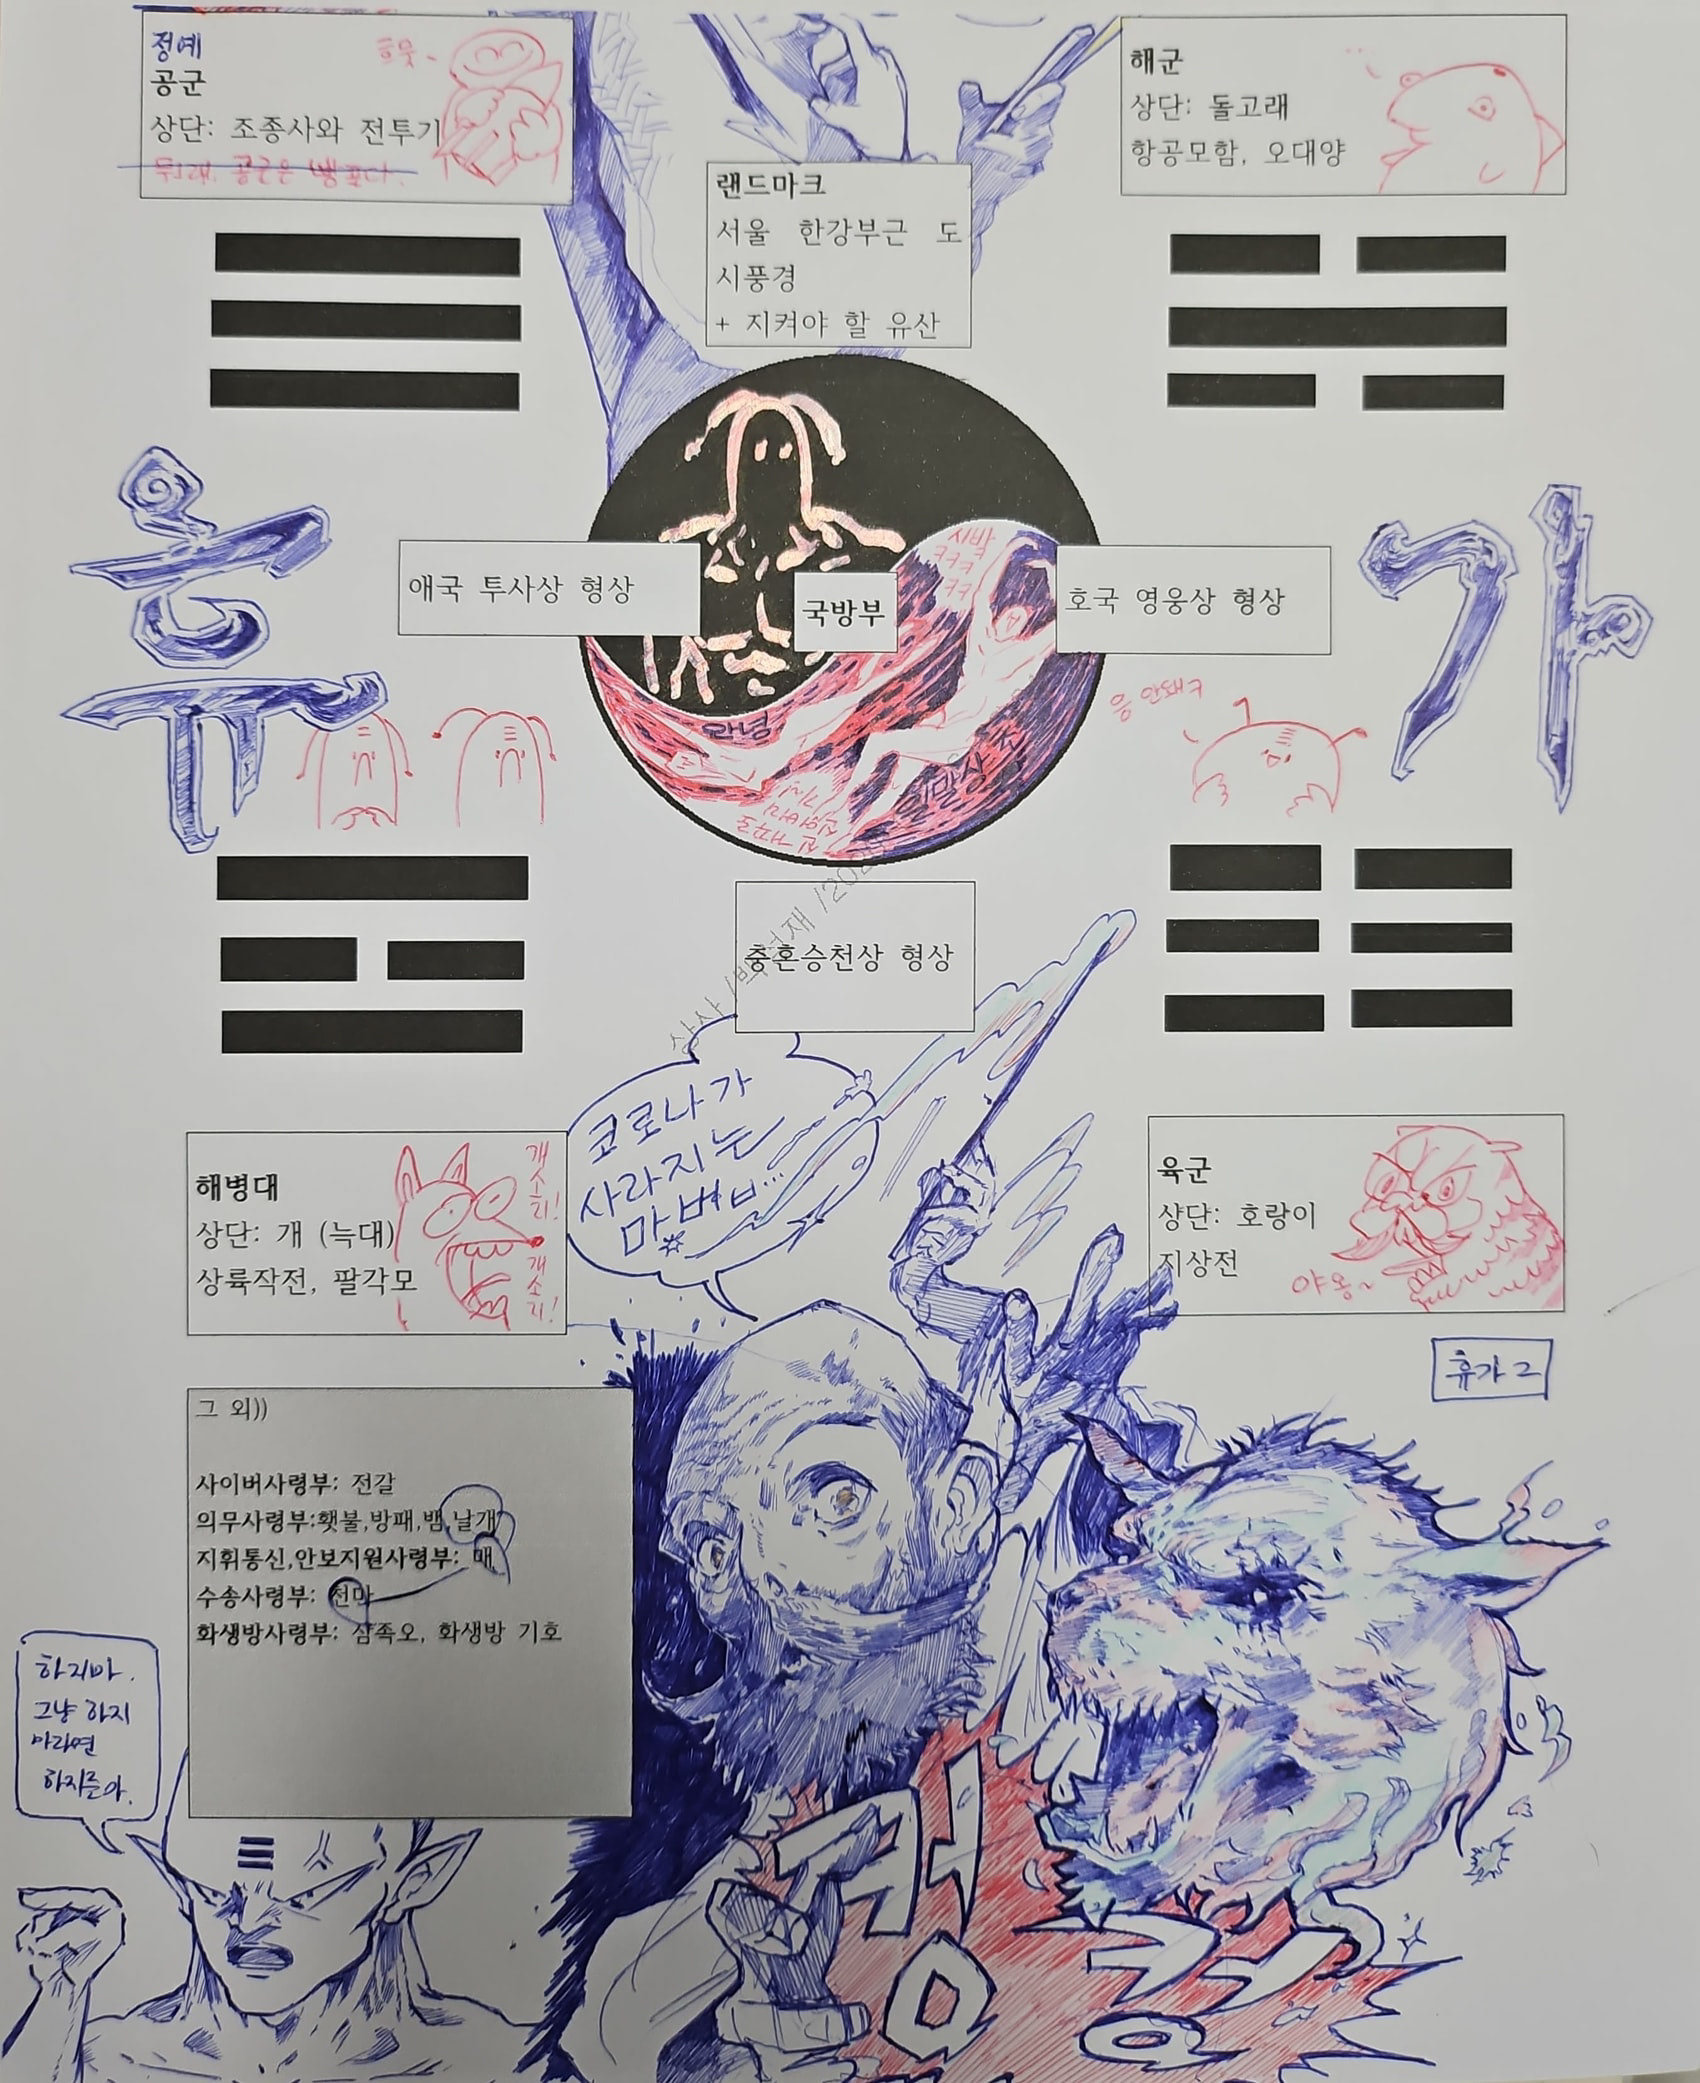 정예
공군
상단: 조종사와 전투기
흐뭇~
해군
상단: 돌고래
항공모함, 오대양
랜드마크
서울 한강부근 도
시풍경
+ 지켜야 할 유산
휴
가
애국 투사상 형상
국방부
호국 영웅상 형상
시발
ㅋㅋㅋ
ㅋㅋ
살
려
줘
안녕
응 안돼ㅋ
충혼승천상 형상
상사 /박
재 /202
코로나가
사라지는
마법
해병대
상단: 개 (늑대)
상륙작전, 팔각모
개소리!
개소리!
육군
상단: 호랑이
지상전
야옹~
휴가고
그 외))
사이버사령부: 전갈
의무사령부:횃불,방패,뱀,날개
지휘통신,안보지원사령부: 매
수송사령부: 천마
화생방사령부: 삼족오, 화생방 기호
하지마.
그냥 하지
말라면
하지좀마.
컹
컹